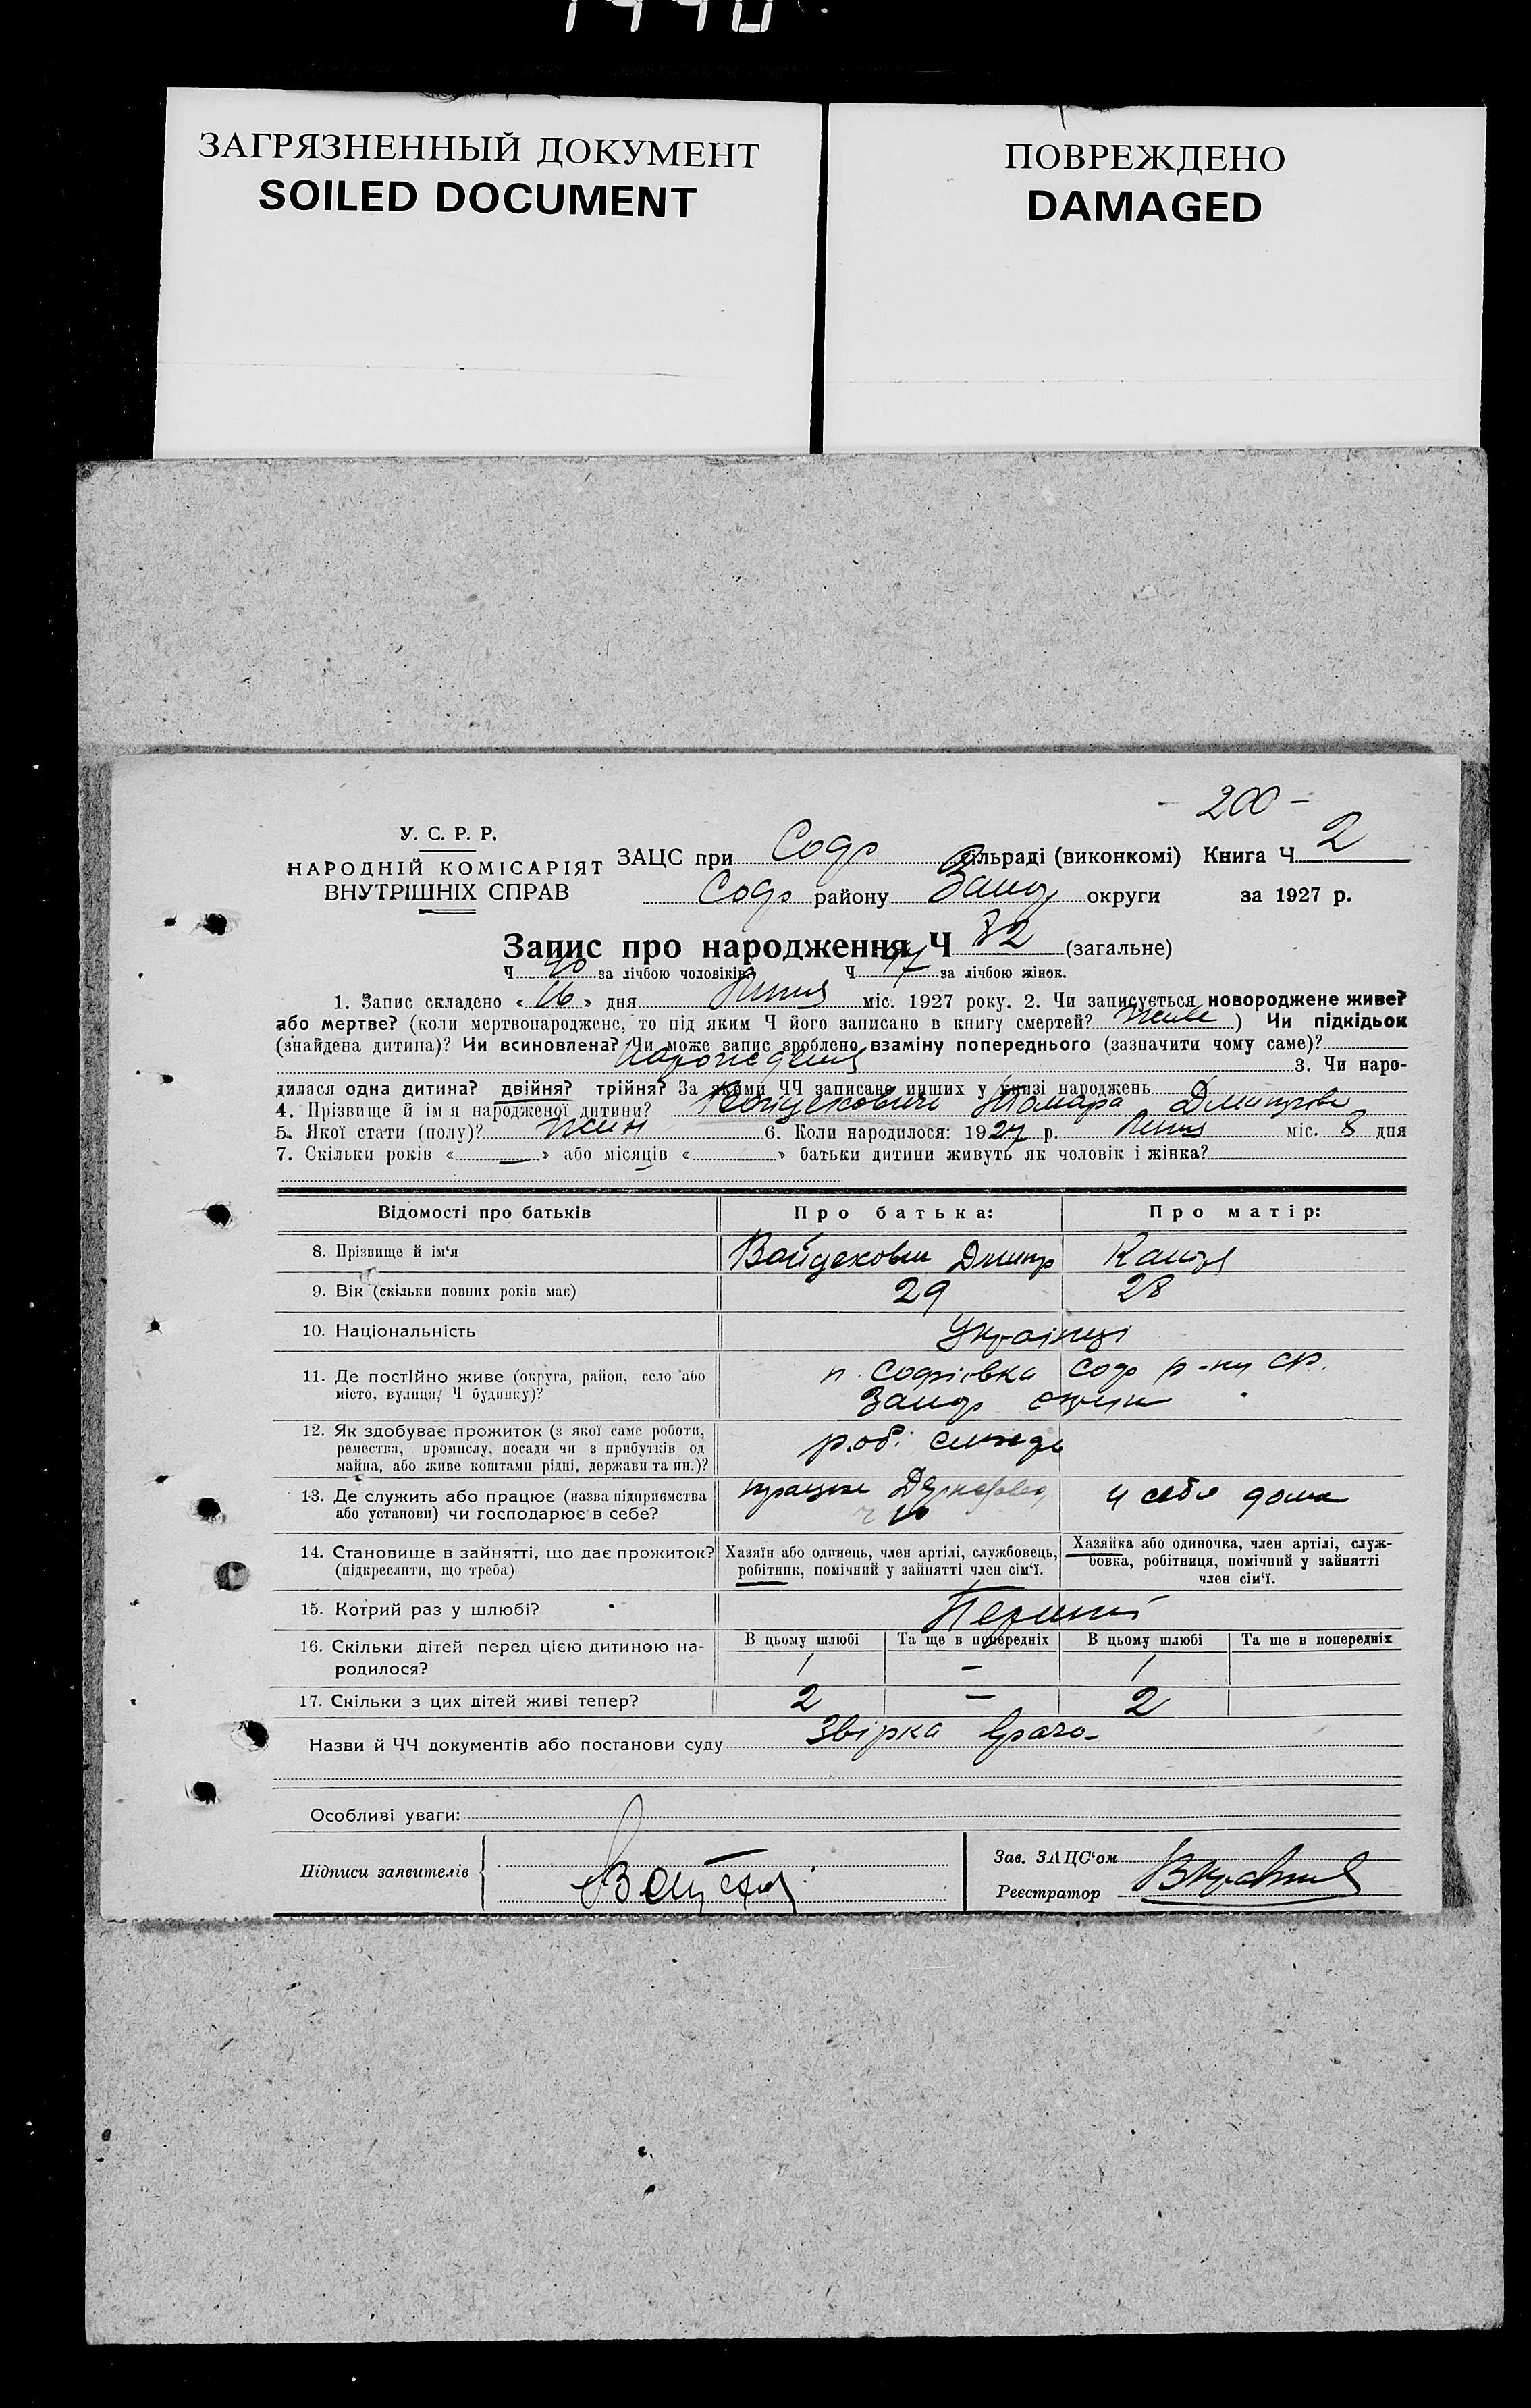 ЗАГРЯЗНЕННЫЙ ДОКУМЕНТ
SOILED DOCUMENT
ПОВРЕЖДЕНО
DAMAGED
- 200 -
У. С. Р. Р.
НАРОДНІЙ КОМІСАРІЯТ
ВНУТРІШНІХ СПРАВ
ЗАЦС при Соф сільраді (виконкомі) Книга Ч 2
Соф району Запор округи за 1927 р.
Запис про народження Ч 82 (загальне)
Ч 40 за лічбою чоловіків. Ч за лічбою жінок.
1. Запис складено « 16 » дня Липня міс. 1927 року. 2. Чи записується новороджене живе?
або мертве? (коли мертвонароджене, то під яким Ч його записано в книгу смертей? Живе ) Чи підкідьок
(знайдена дитина)? Чи всиновлена? Чи може запис зроблено взаміну попереднього (зазначити чому саме)?
народження 3. Чи наро-
дилася одна дитина? двійня? трійня? За якими ЧЧ записано инших у книзі народжень
4. Прізвище й ім'я народженої дитини? Войцехович Тамара Дмитрова
5. Якої статі (полу)? жін 6. Коли народилося: 1927 р. Липня міс. 8 дня
7. Скільки років « — » або місяців « » батьки дитини живуть як чоловік і жінка?
Відомості про батьків Про батька: Про матір:
8. Прізвище й ім'я Войцехович Дмитр
9. Вік (скільки повних років має) 29 28
10. Національність Українці
11. Де постійно живе (округа, район, село або
місто, вулиця, Ч будинку)?
п. Софіївка Соф р-ну
Запор округи
12. Як здобуває прожиток (з якої саме роботи,
ремества, промислу, посади чи з прибутків од
майна, або живе коштами рідні, держави та ин.)?
роб.
13. Де служить або працює (назва підприємства
або установи) чи господарює в себе?
працює
у себе дома
14. Становище в зайнятті, що дає прожиток?
(підкреслити, що треба)
Хазяїн або одинець, член артілі, службовець,
робітник, помічний у зайнятті член сім'ї.
Хазяйка або одиночка, член артілі, служ-
бовка, робітниця, помічний у зайнятті
член сім'ї.
15. Котрий раз у шлюбі? Перший
16. Скільки дітей перед цією дитиною на-
родилося?
В цьому шлюбі Та ще в попередніх В цьому шлюбі Та ще в попередніх
1 — 1
17. Скільки з цих дітей живі тепер? 2 — 2
Назви й ЧЧ документів або постанови суду
Особливі уваги:
Підписи заявителів
Зав. ЗАЦС'ом
Реєстратор